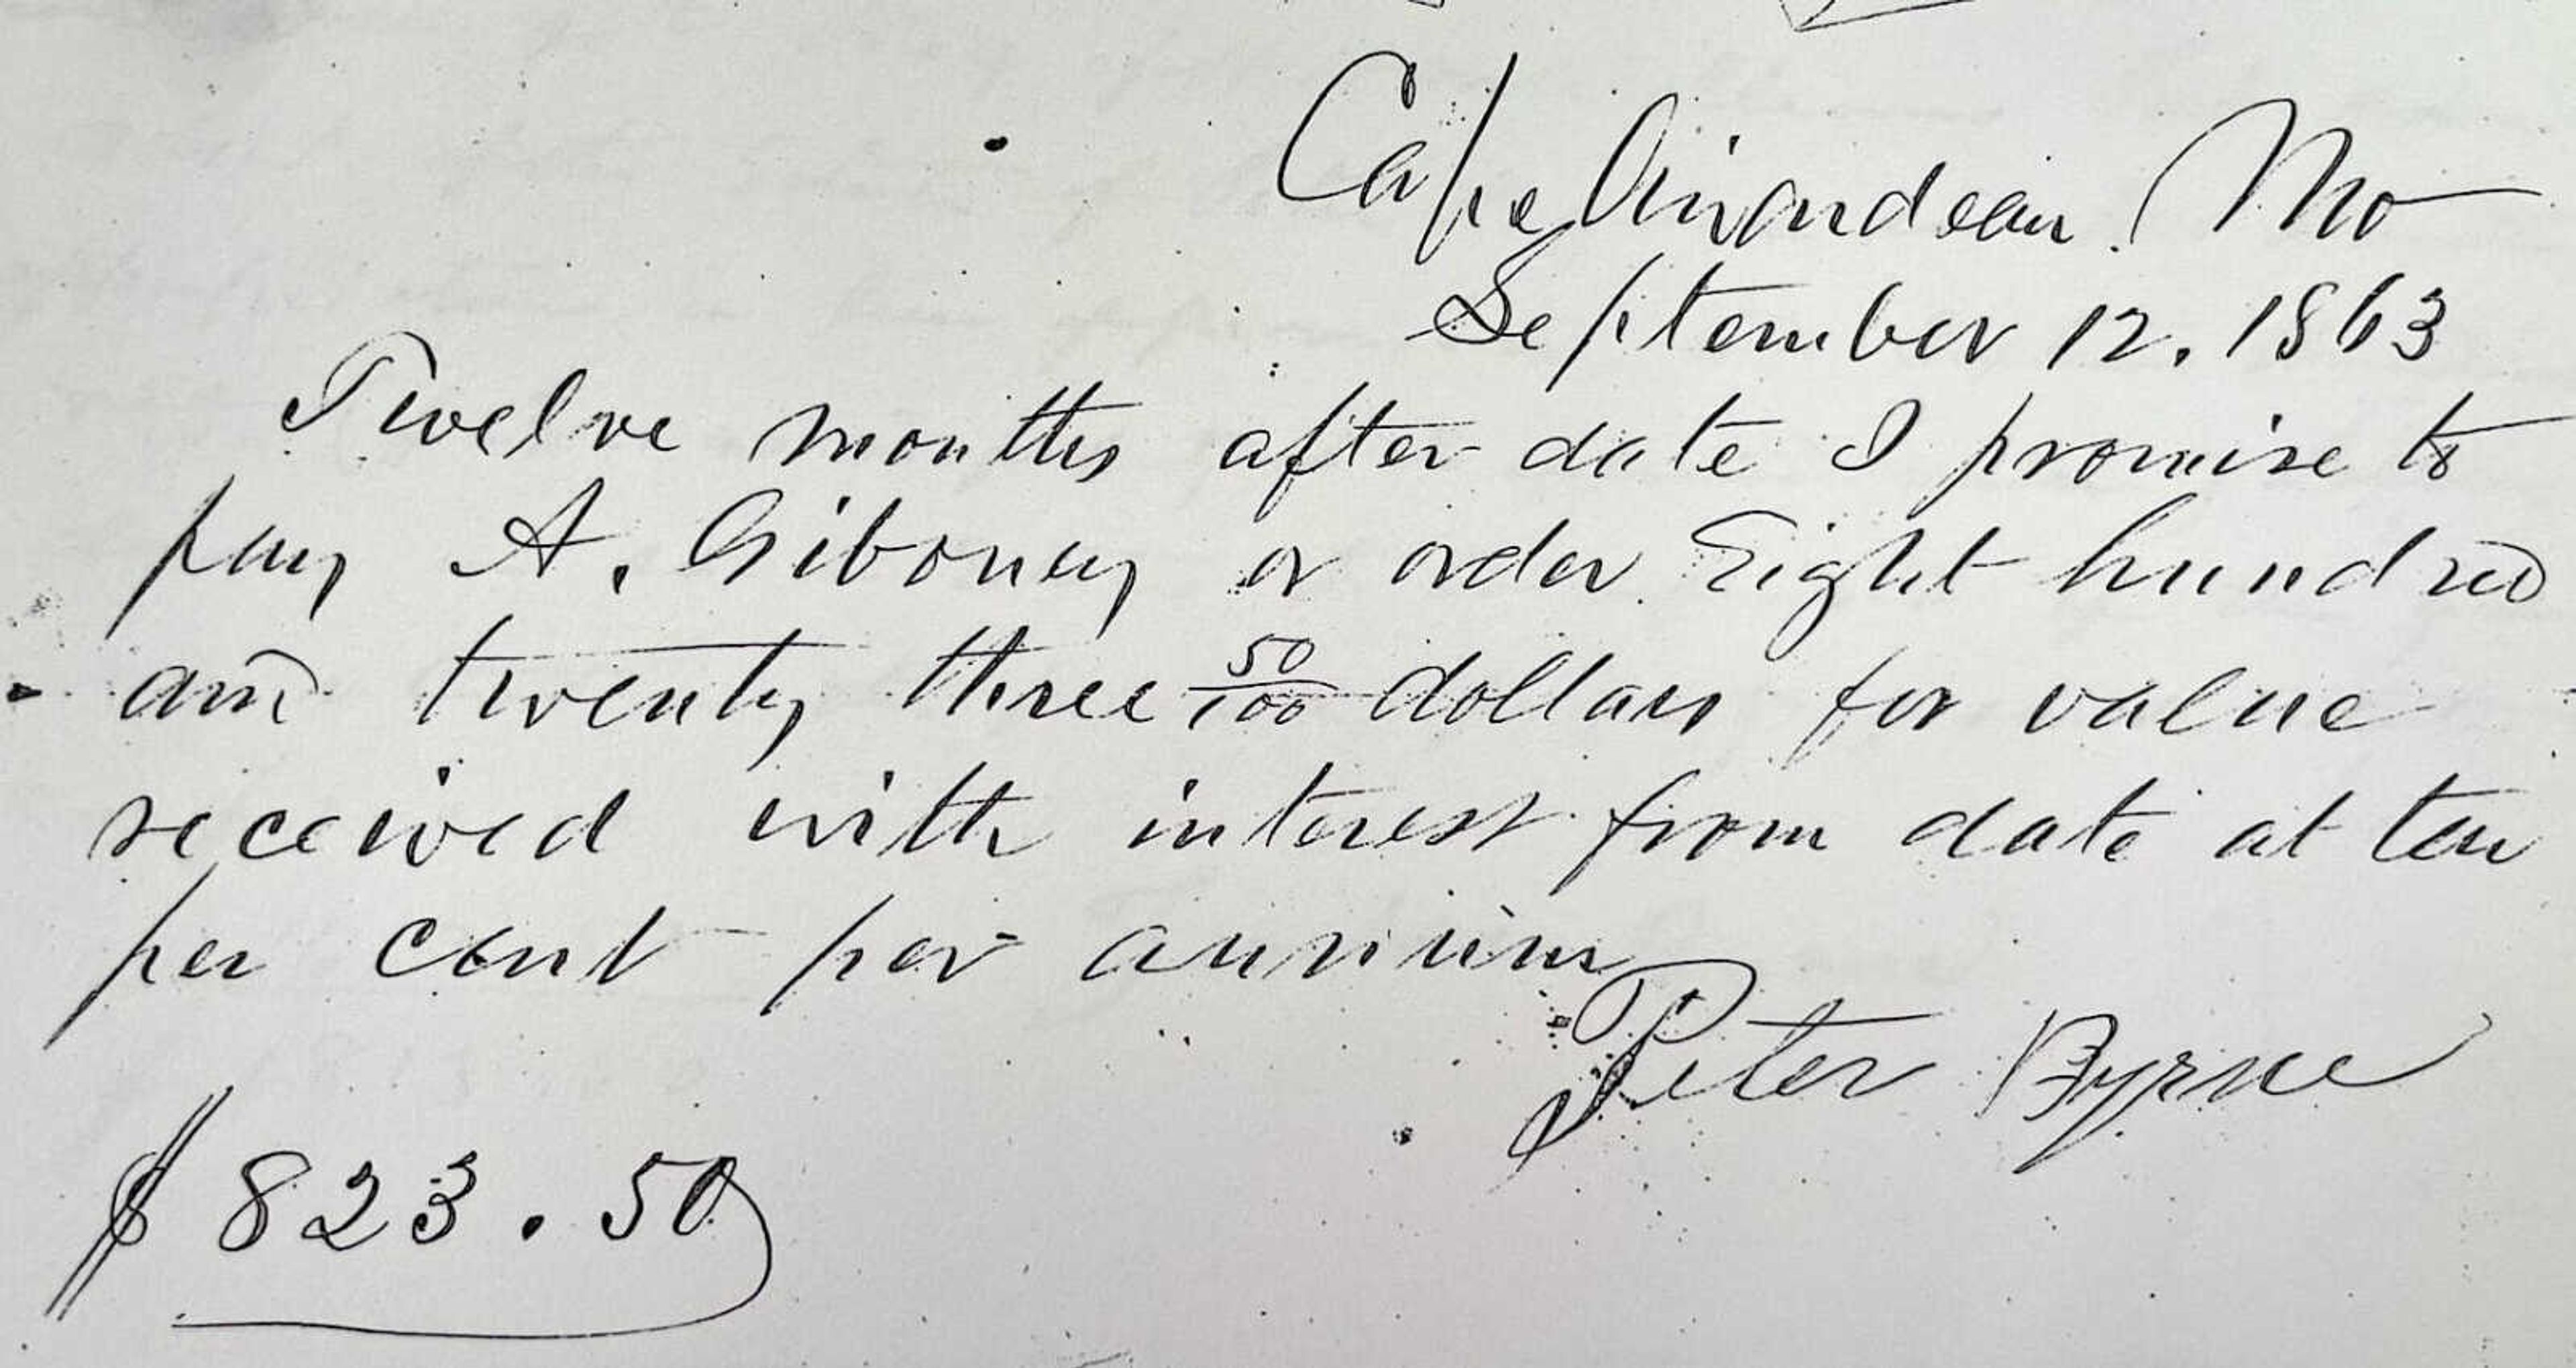 Cape Girardeau. Mo
September 12. 1863
Twelve months after date I promise to
pay A. Giboney or order Eight hundred
and twenty three 50/100 dollars for value
received with interest from date at ten
per cent per annum
Peter Byrne
$ 823.50